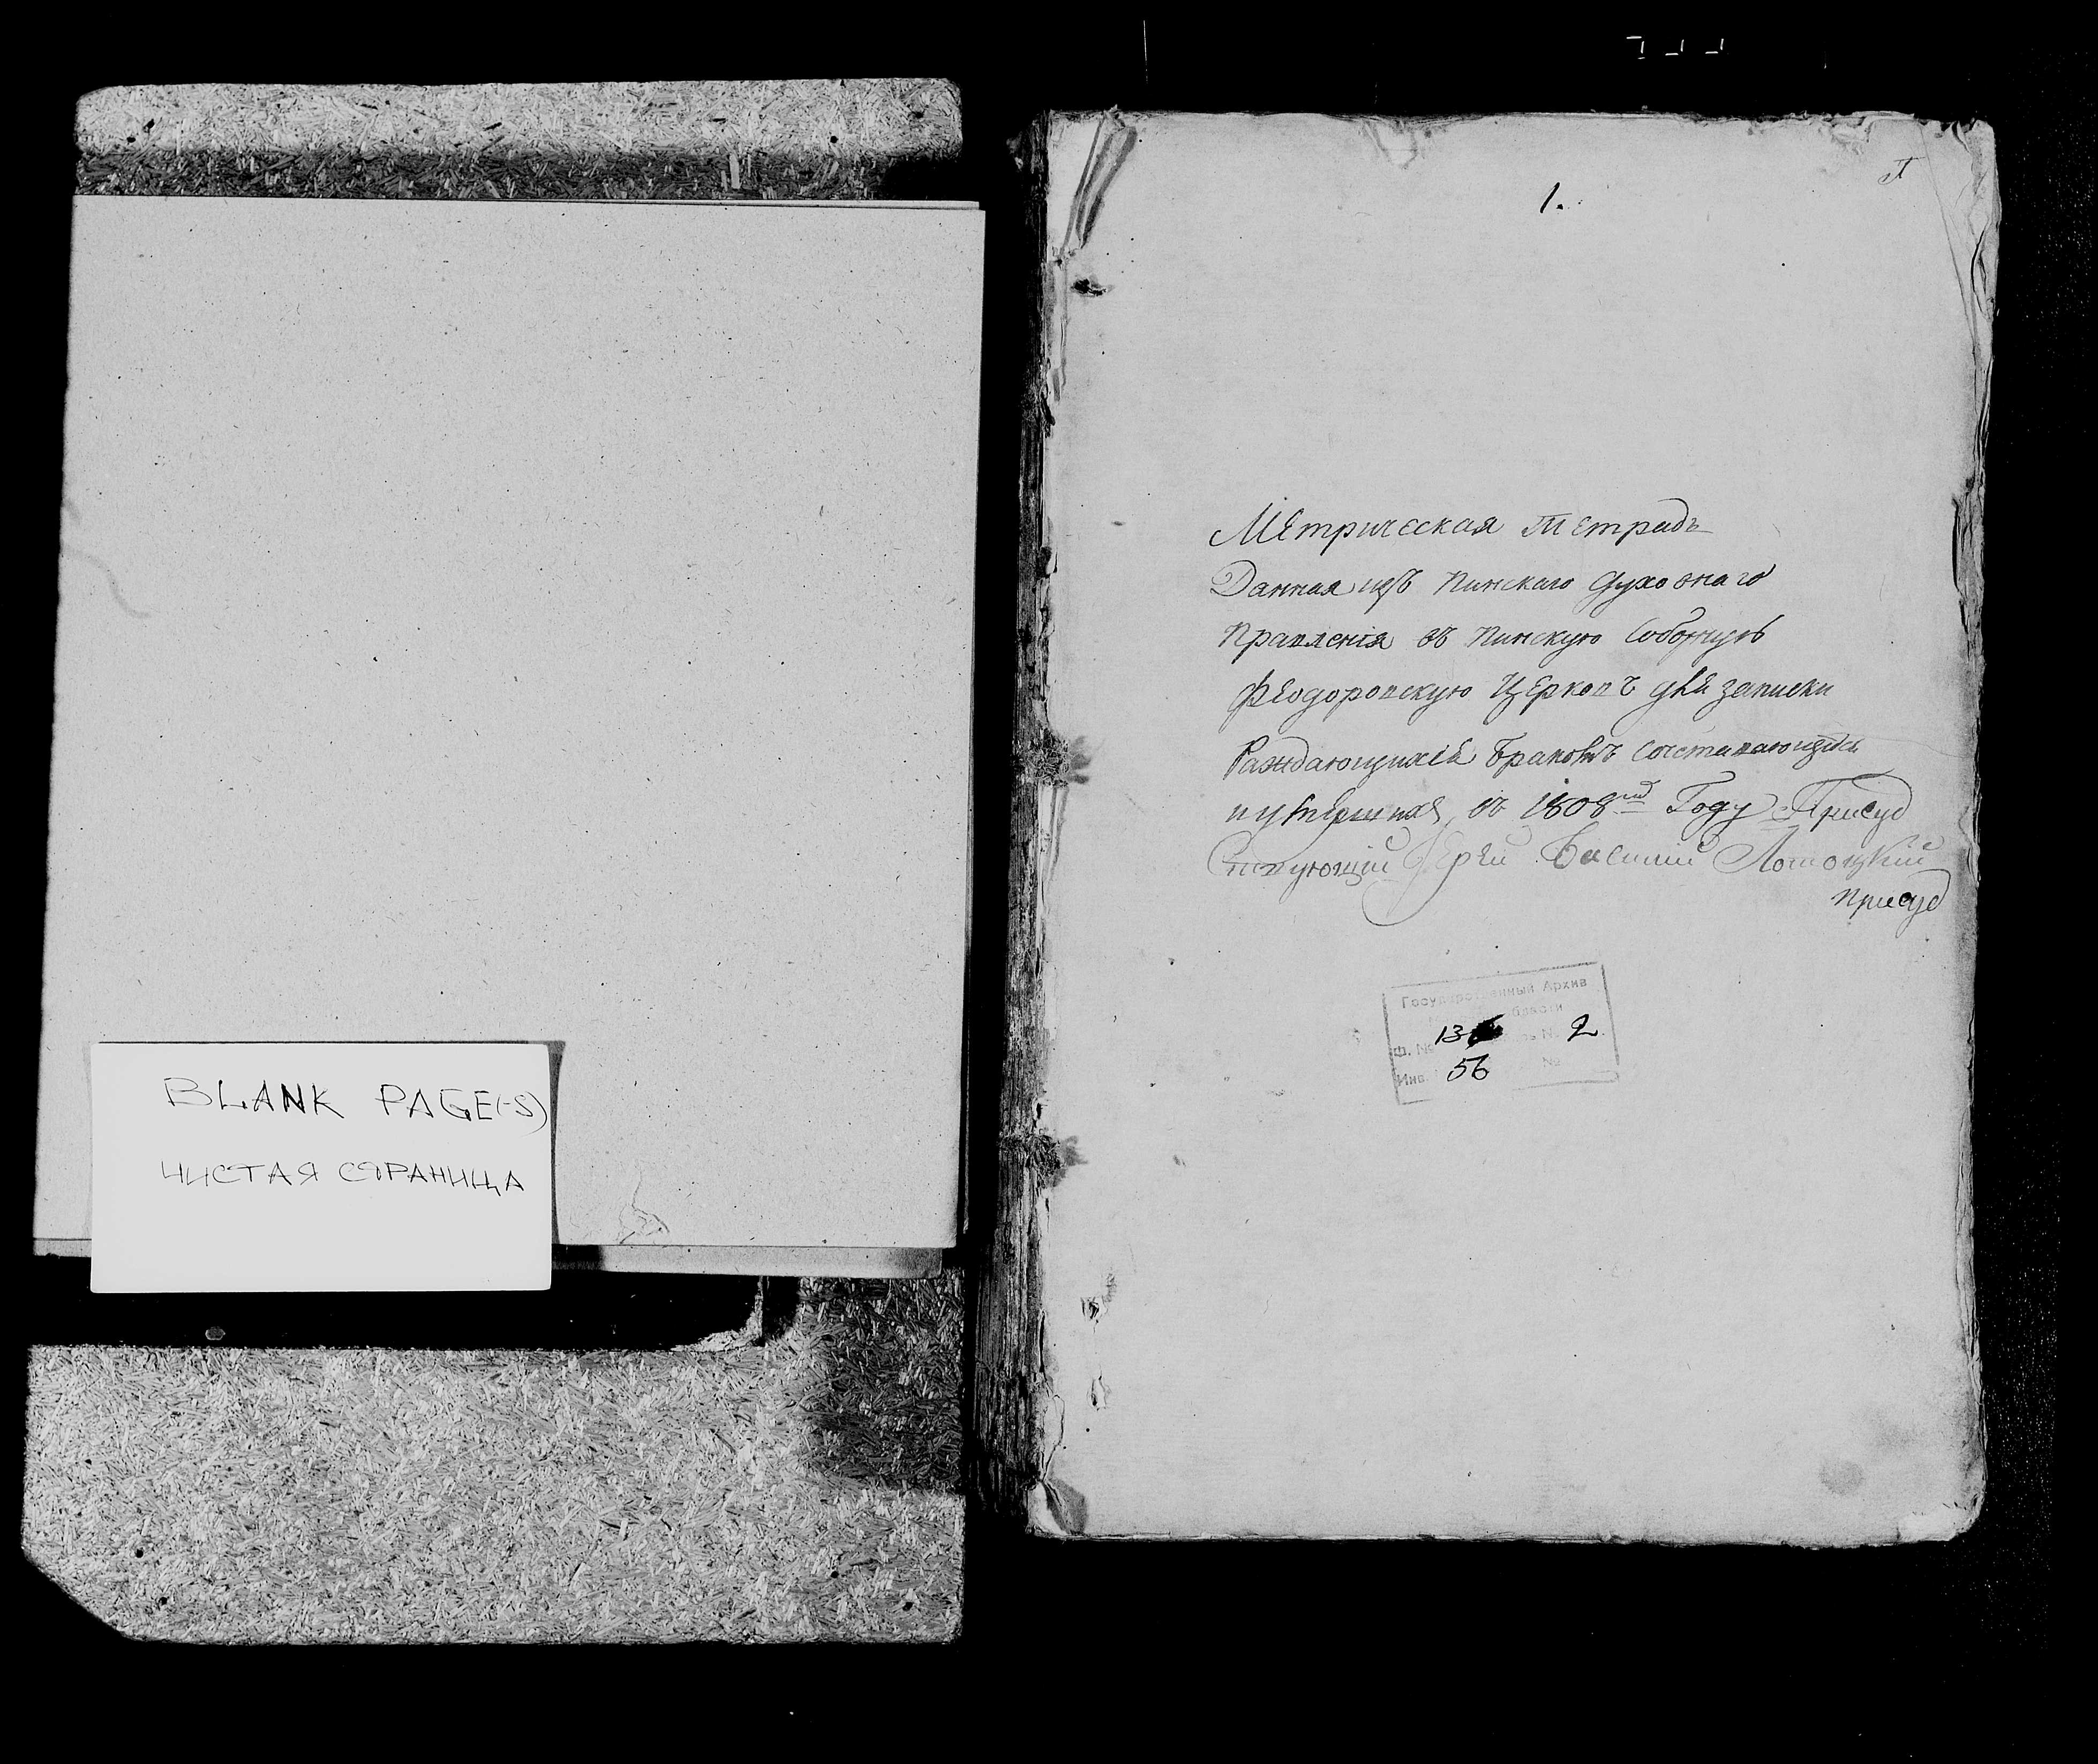 BLANK PAGE(-S)
ЧИСТАЯ СТРАНИЦА
1.
Метрическая тетрадь
Данная изъ Пинскаго духовнаго
Правленія въ Пинскую Соборную
Феодоровскую Церковъ для записки
Раждающихся браковъ сочетавающихся
и умершихъ въ 1808мъ Году Присуд
ствующій Іерей Василий
присуд
Государственный Архив
области
Ф. № 13 2
Инв. 56 №